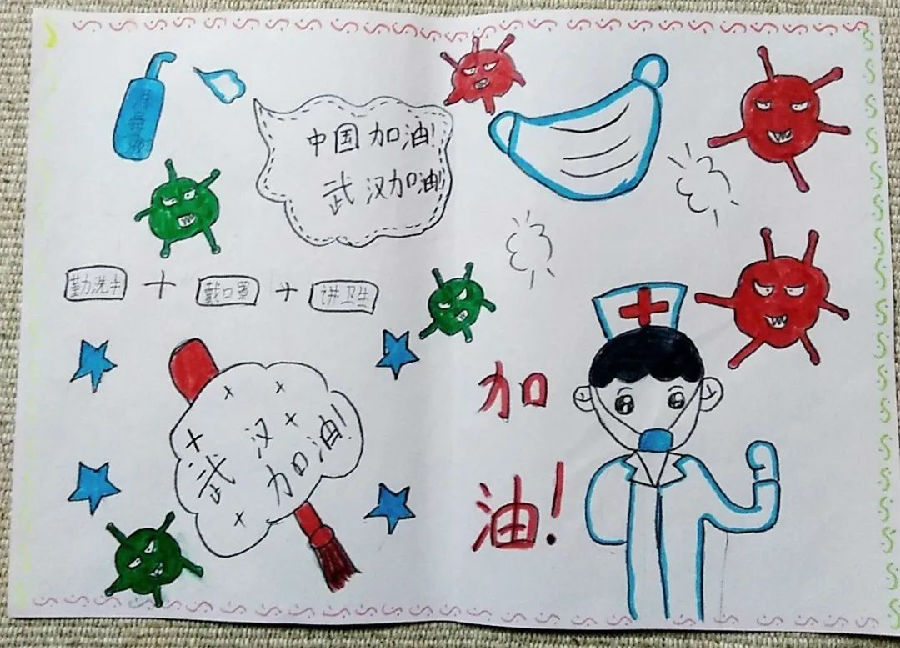 消毒液
中国加油!
武汉加油!
勤洗手 + 戴口罩 + 讲卫生
武汉
加油!
加
油!